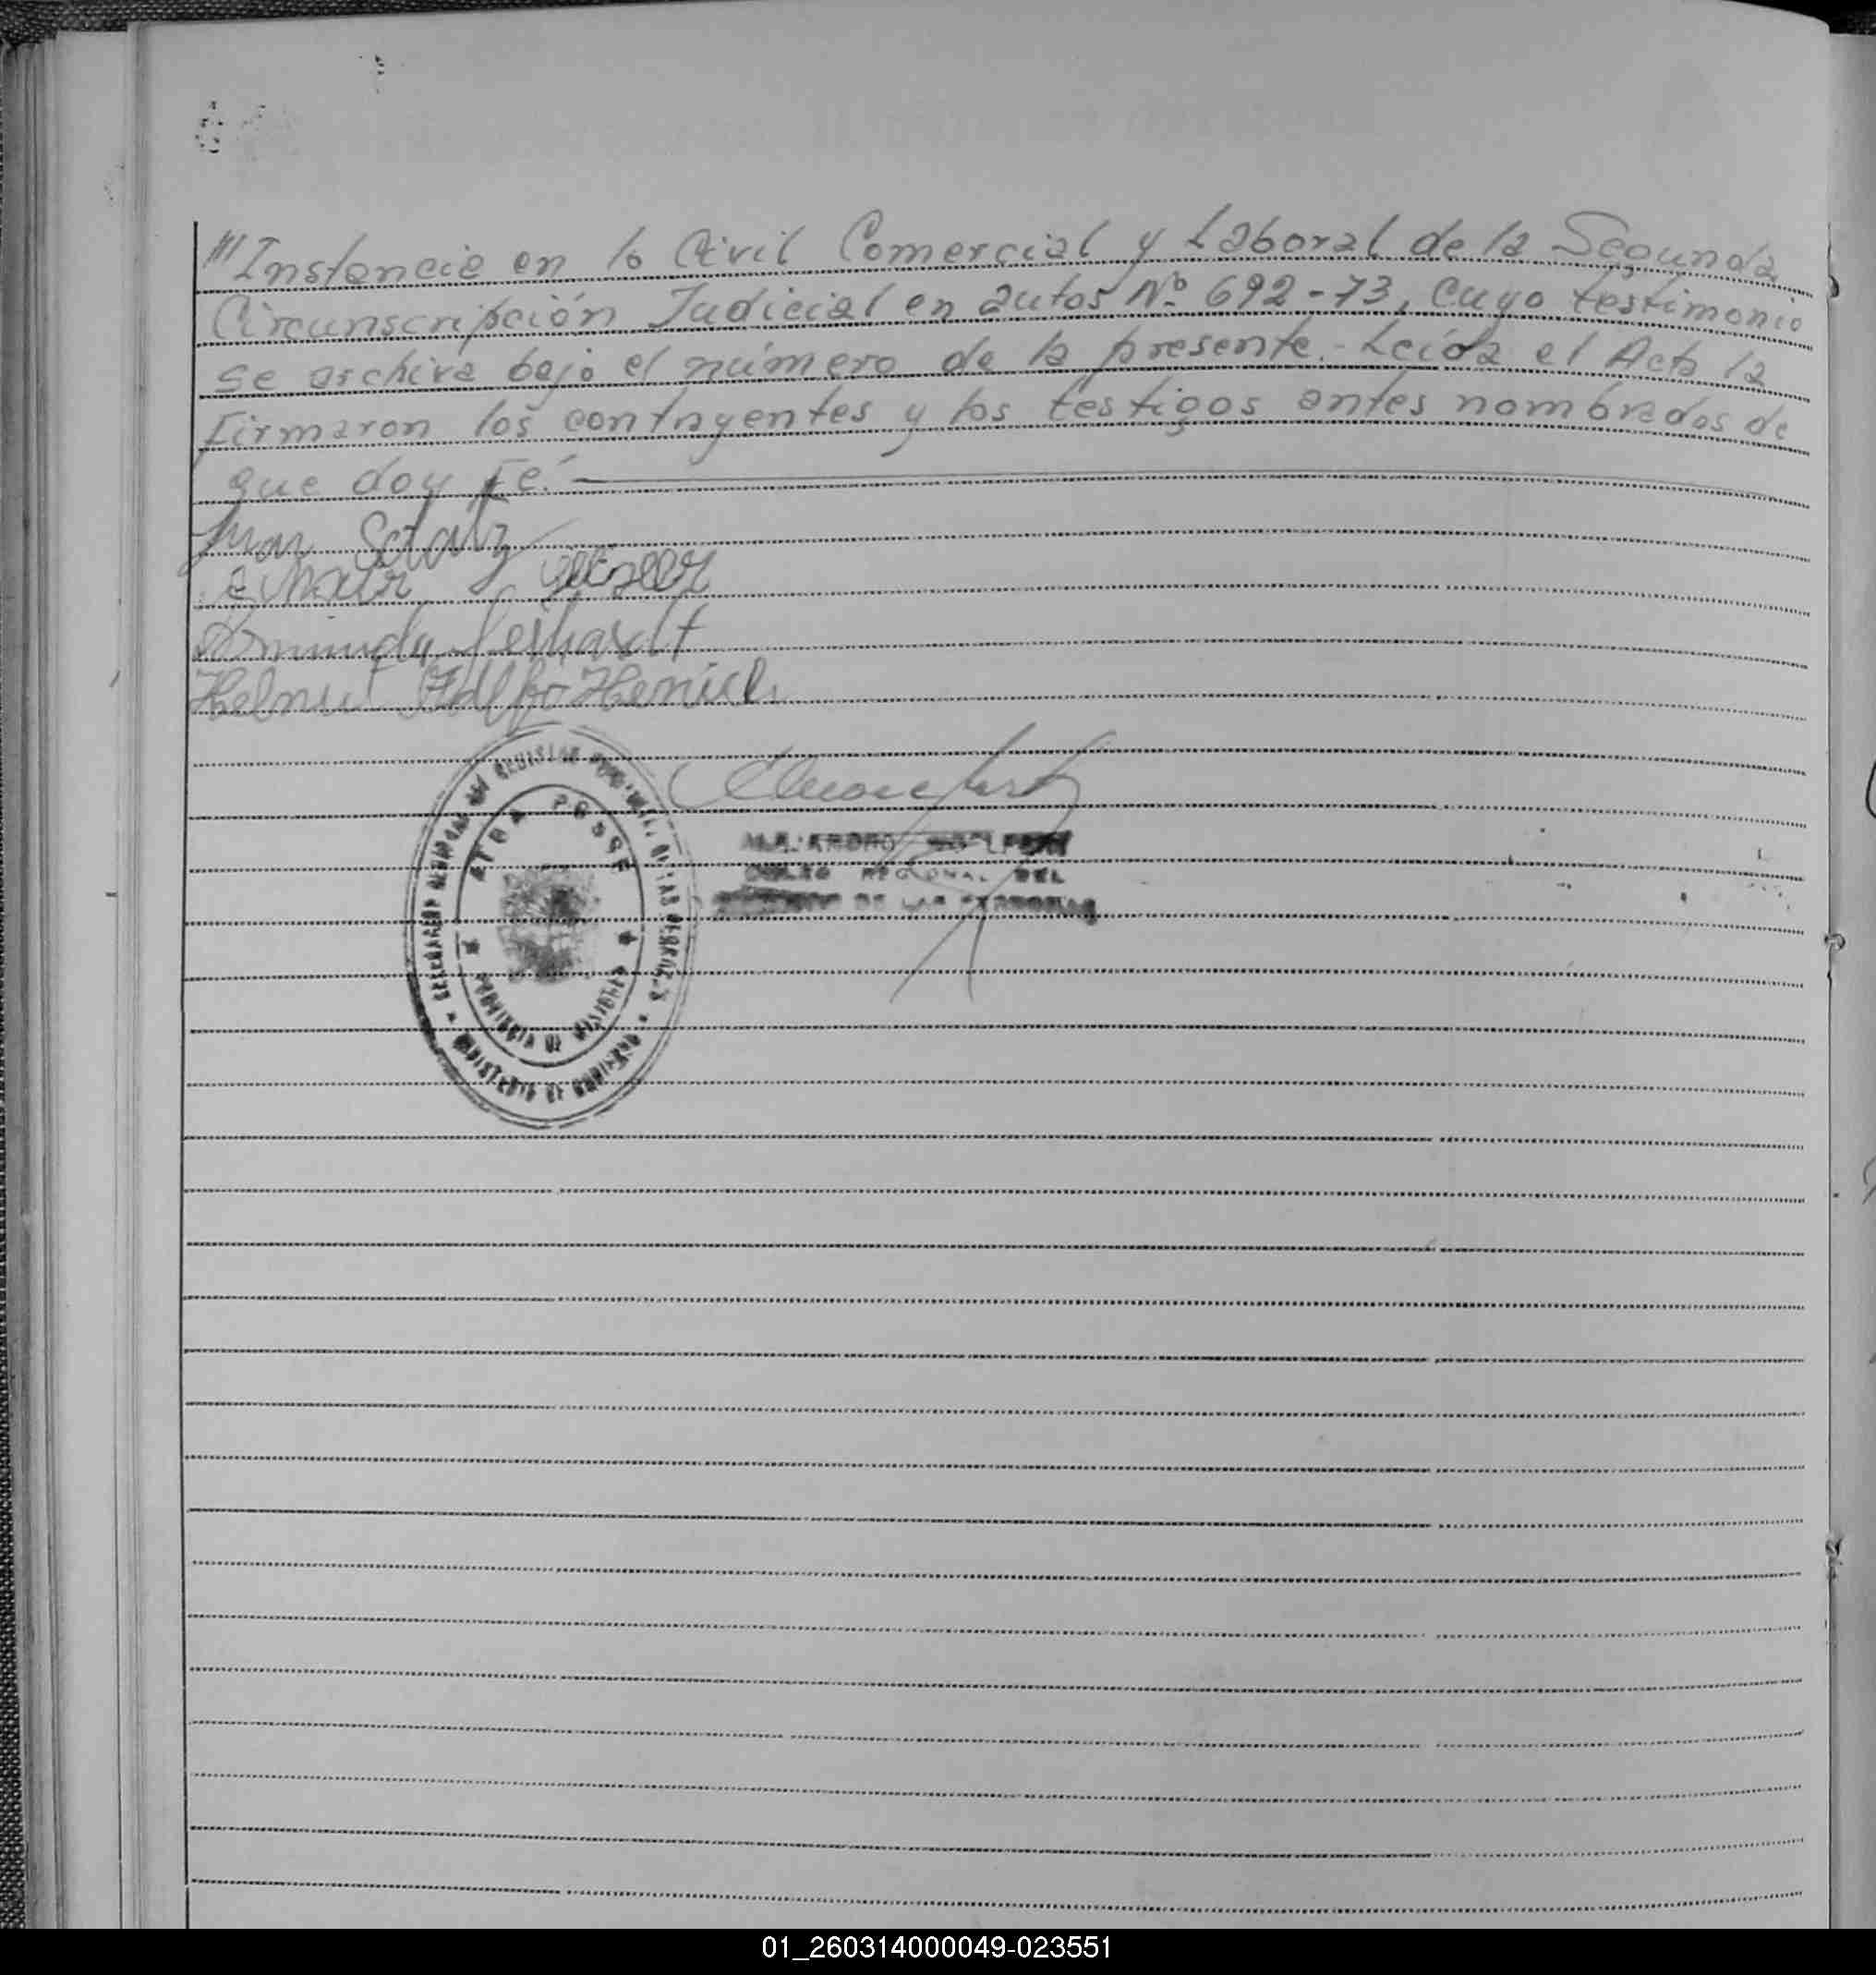 ///Instancia en lo Civil Comercial y Laboral de la Segunda
Circunscripción Judicial en autos Nº 692-73, cuyo testimonio
se archiva bajo el número de la presente.- Leída el Acta la
firmaron los contrayentes y los testigos antes nombrados de
que doy Fé.
Juan
Helmut Adolfo Henich
REGIONAL DEL
DE LAS PERSONAS
PROVINCIA DE MISIONES
MINISTERIO DE GOBIERNO
01_260314000049-023551